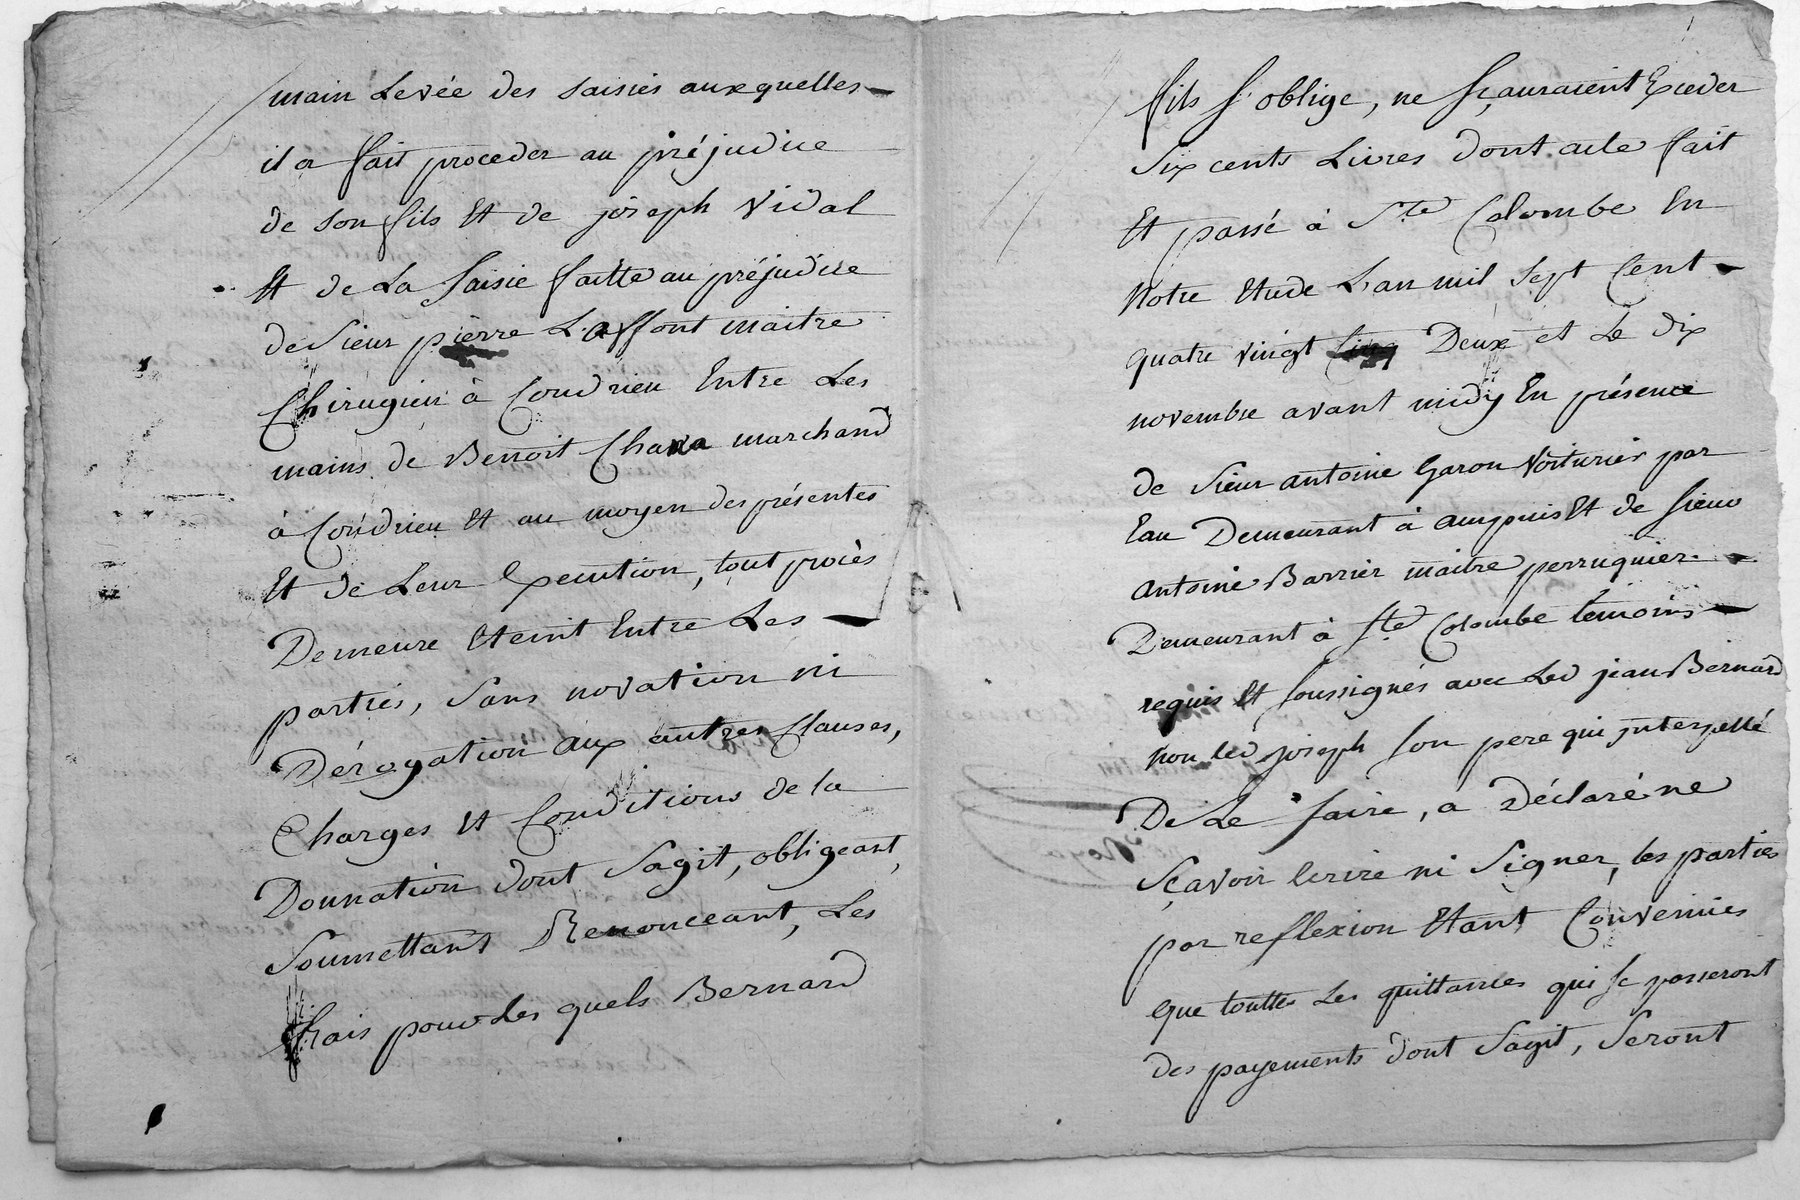 main Levée des saisies auxquelles
il a fait proceder au préjudice
de son fils Et de joseph Vidal
Et de La saisie faitte au préjudice
de Sieur pierre Laffont maitre
Chirugien à Condrieu Entre Les
mains de Benoit Chava marchand
à Condrieu Et au moyen des présentes
Et de Leur Execution, tout procès
Demeure Eteint Entre Les
parties, sans novation ni
Dérogation aux autres Clauses,
Charges et Conditions de la
Donnation dont Sagit, obligeant,
Soumettant Renonceant, Les
frais pour Les quels Bernard
fils s'oblige, ne sçauraient Exceder
Six cents Livres dont acte fait
Et passé à Ste Colombe En
Notre Etude L'an mil sept Cent
quatre vingt Deux et Le dix
novembre avant midy En présence
de Sieur antoine Garon Voiturier par
Eau Demeurant à ampuis Et de sieur
antoine Barrier maitre perruquier
Demeurant à Ste Colombe témoins
requis Et soussignés avec Led jean Bernard
non led joseph son pere qui interpellé
De Le faire, a Déclaré ne
Sçavoir Ecrire ni Signer, les parties
par reflexion Etant Convenues
que touttes Les quittances qui se passeront
des payements dont Sagit, Seront